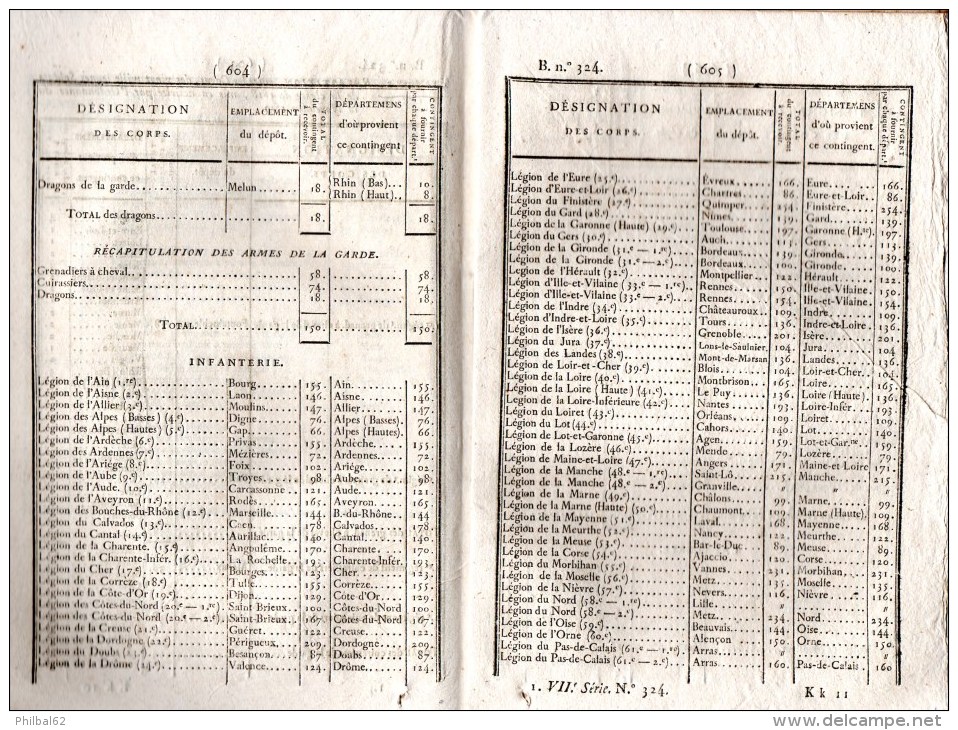 ( 604 )
DÉSIGNATION DES CORPS. EMPLACEMENT du dépôt. TOTAL du contingent à recevoir. DÉPARTEMENS d'où provient ce contingent. CONTINGENT à fournir par chaque départ.t
Dragons de la garde. Melun. 18. Rhin (Bas)... 10.
Rhin (Haut).. 8.
TOTAL des dragons. 18. 18.
RÉCAPITULATION DES ARMES DE LA GARDE.
Grenadiers à cheval. 58. 58.
Cuirassiers. 74. 74.
Dragons. 18. 18.
TOTAL. 150. 150.
INFANTERIE.
Légion de l'Ain (1.re) Bourg. 155. Ain. 155.
Légion de l'Aisne (2.e) Laon. 146. Aisne. 146.
Légion de l'Allier (3.e) Moulins. 147. Allier. 147.
Légion des Alpes (Basses) (4.e) Digne. 76. Alpes (Basses). 76.
Légion des Alpes (Hautes) (5.e) Gap. 66. Alpes (Hautes). 66.
Légion de l'Ardèche (6.e) Privas. 155. Ardèche. 155.
Légion des Ardennes (7.e) Mézières. 72. Ardennes. 72.
Légion de l'Ariége (8.e) Foix. 102. Ariége. 102.
Légion de l'Aube (9.e) Troyes. 98. Aube. 98.
Légion de l'Aude. (10.e) Carcassonne 121. Aude. 121.
Légion de l'Aveyron (11.e) Rodès. 165. Aveyron. 165.
Légion des Bouches-du-Rhône (12.e) Marseille. 144. B.-du-Rhône.. 144
Légion du Calvados (13.e) Caen. 178. Calvados. 178.
Légion du Cantal (14.e) Aurillac. 140. Cantal. 140.
Légion de la Charente. (15.e) Angoulême. 170. Charente. 170.
Légion de la Charente-Infér. (16.e) La Rochelle. 193. Charente-Infér. 193.
Légion du Cher (17.e) Bourges. 123. Cher. 123.
Légion de la Corrèze (18.e) Tulle. 155. Corrèze. 155.
Légion de la Côte-d'Or (19.e) Dijon. 129. Côte-d'Or. 129.
Légion des Côtes-du-Nord (20.e — 1.re) Saint-Brieux. 100. Côtes-du-Nord 100.
Légion des Côtes-du-Nord (20.e — 2.e) Saint-Brieux. 167. Côtes-du-Nord 167.
Légion de la Creuse (21.e) Guéret. 122. Creuse. 122.
Légion de la Dordogne (22.e) Périgueux. 209. Dordogne. 209.
Légion du Doubs (23.e) Besançon. 87 Doubs. 87.
Légion de la Drôme (24.e) Valence. 124. Drôme. 124.
B. n.o 324. ( 605 )
DÉSIGNATION DES CORPS. EMPLACEMENT du dépôt. TOTAL du contingent à recevoir. DÉPARTEMENS d'où provient ce contingent. CONTINGENT à fournir par chaque départ.t
Légion de l'Eure (25.e) Évreux. 166. Eure. 166.
Légion d'Eure-et-Loir (26.e) Chartres. 86. Eure-et-Loir. 86.
Légion du Finistère (27.e) Quimper. 254. Finistère. 254.
Légion du Gard (28.e) Nimes. 139. Gard. 139.
Légion de la Garonne (Haute) (29.e) Toulouse. 197. Garonne (H.te) 197.
Légion du Gers (30.e) Auch. 113. Gers. 113.
Légion de la Gironde (31.e — 1.re) Bordeaux. 139. Gironde. 139.
Légion de la Gironde (31.e — 2.e) Bordeaux. 100. Gironde. 100.
Légion de l'Hérault (32.e) Montpellier. 122. Hérault. 122.
Légion d'Ille-et-Vilaine (33.e — 1.re) Rennes. 150. Ille-et-Vilaine. 150.
Légion d'Ille-et-Vilaine (33.e — 2.e) Rennes. 154. Ille-et-Vilaine. 154.
Légion de l'Indre (34.e) Châteauroux. 109. Indre. 109.
Légion d'Indre-et-Loire (35.e) Tours. 136. Indre-et-Loire. 136.
Légion de l'Isère (36.e) Grenoble. 201. Isère. 201
Légion du Jura (37.e) Lons-le-Saulnier. 104. Jura. 104.
Légion des Landes (38.e) Mont-de-Marsan 136. Landes. 136.
Légion de Loir-et-Cher (39.e) Blois. 104. Loir-et-Cher. 104.
Légion de la Loire (40.e) Montbrison. 165. Loire. 165.
Légion de la Loire (Haute) (41.e) Le Puy. 136. Loire (Haute). 136.
Légion de la Loire-Inférieure (42.e) Nantes. 193. Loire-Infér. 193.
Légion du Loiret (43.e) Orléans. 109. Loiret. 109.
Légion du Lot (44.e) Cahors. 140. Lot. 140.
Légion de Lot-et-Garonne (45.e) Agen. 159. Lot-et-Gar.ne 159.
Légion de la Lozère (46.e) Mende. 79. Lozère. 79.
Légion de Maine-et-Loire (47.e) Angers. 171. Maine-et-Loire 171.
Légion de la Manche (48.e — 1.re) Saint-Lô. 215. Manche. 215.
Légion de la Manche (48.e — 2.e) Granville. " " "
Légion de la Marne (49.e) Châlons. 99. Marne. 99.
Légion de la Marne (Haute) (50.e) Chaumont. 109. Marne (Haute). 109.
Légion de la Mayenne (51.e) Laval. 168. Mayenne. 168.
Légion de la Meurthe (52.e) Nancy. 122. Meurthe. 122.
Légion de la Meuse (53.e) Bar-le-Duc. 89. Meuse. 89.
Légion de la Corse (54.e) Ajaccio. 120. Corse. 120.
Légion du Morbihan (55.e) Vannes. 231. Morbihan. 231.
Légion de la Moselle (56.e) Metz. 135. Moselle. 135.
Légion de la Nièvre (57.e) Nevers. 116. Nièvre. 116.
Légion du Nord (58.e — 1.re) Lille. " " "
Légion du Nord (58.e — 2.e) Metz. 234. Nord. 234.
Légion de l'Oise (59.e) Beauvais. 144. Oise. 144.
Légion de l'Orne (60.e) Alençon. 150. Orne. 150.
Légion du Pas-de-Calais (61.e — 1.re) Arras. " " "
Légion du Pas-de-Calais (61.e — 2.e) Arras. 160. Pas-de-Calais. 160
1. VII.e Série. N.o 324. K k 11
Philbal62
delcampe.net